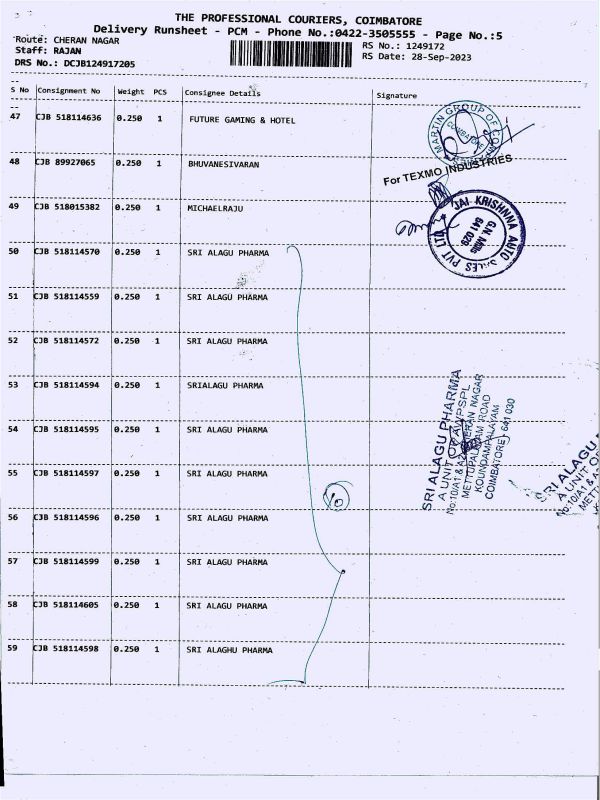 THE PROFESSIONAL COURIERS, COIMBATORE
Delivery Runsheet - PCM - Phone No.:0422-3505555 - Page No.:5
Route: CHERAN NAGAR
Staff: RAJAN
DRS No.: DCJB124917205
RS No.: 1249172
RS Date: 28-Sep-2023
S No Consignment No Weight PCS Consignee Details Signature
47 CJB 518114636 0.250 1 FUTURE GAMING & HOTEL
MARTIN GROUP OF
COIMBATORE
48 CJB 89927065 0.250 1 BHUVANESIVARAN
For TEXMO INDUSTRIES
49 CJB 518015382 0.250 1 MICHAELRAJU
JAI KRISHNNA AUTO SALES PVT LTD
G.N. Mills
641 029
50 CJB 518114570 0.250 1 SRI ALAGU PHARMA
51 CJB 518114559 0.250 1 SRI ALAGU PHARMA
52 CJB 518114572 0.250 1 SRI ALAGU PHARMA
53 CJB 518114594 0.250 1 SRIALAGU PHARMA
54 CJB 518114595 0.250 1 SRI ALAGU PHARMA
55 CJB 518114597 0.250 1 SRI ALAGU PHARMA
56 CJB 518114596 0.250 1 SRI ALAGU PHARMA
57 CJB 518114599 0.250 1 SRI ALAGU PHARMA
58 CJB 518114605 0.250 1 SRI ALAGU PHARMA
59 CJB 518114598 0.250 1 SRI ALAGHU PHARMA
10
SRI ALAGU PHARMA
A UNIT OF AWPSPL
No:10/A1 & A2, CHERAN NAGAR
METTUPALAYAM ROAD
KOUNDAMPALAYAM
COIMBATORE) 641 030
SRI ALAGU
A UNIT OF
No:10/A1 &
METT